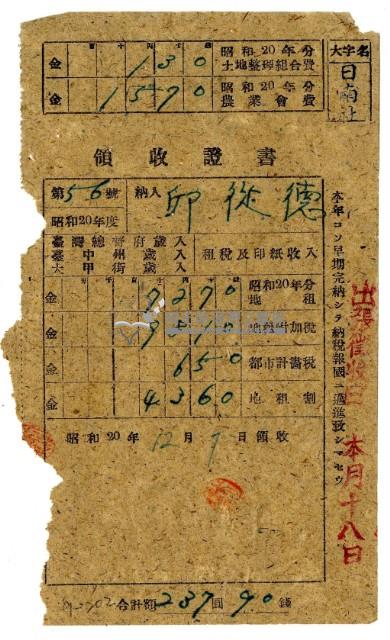 大字名
日南社
金 130 昭和20年分 土地整理組合費
金 1570 昭和20年分 農業會費
領收證書
第56號 納人 邱從德
昭和20年度
臺灣總督府歲入
臺中州歲入
大甲街歲入
租稅及印紙收入
金 9290 昭和20年分 地租
地租附加稅
金 650 都市計畫稅
金 4360 地租割
昭和20年12月 日領收
合計額 237圓90錢
本年コソ早期完納シテ納稅報國ニ邁進致シマセウ
本月十八日